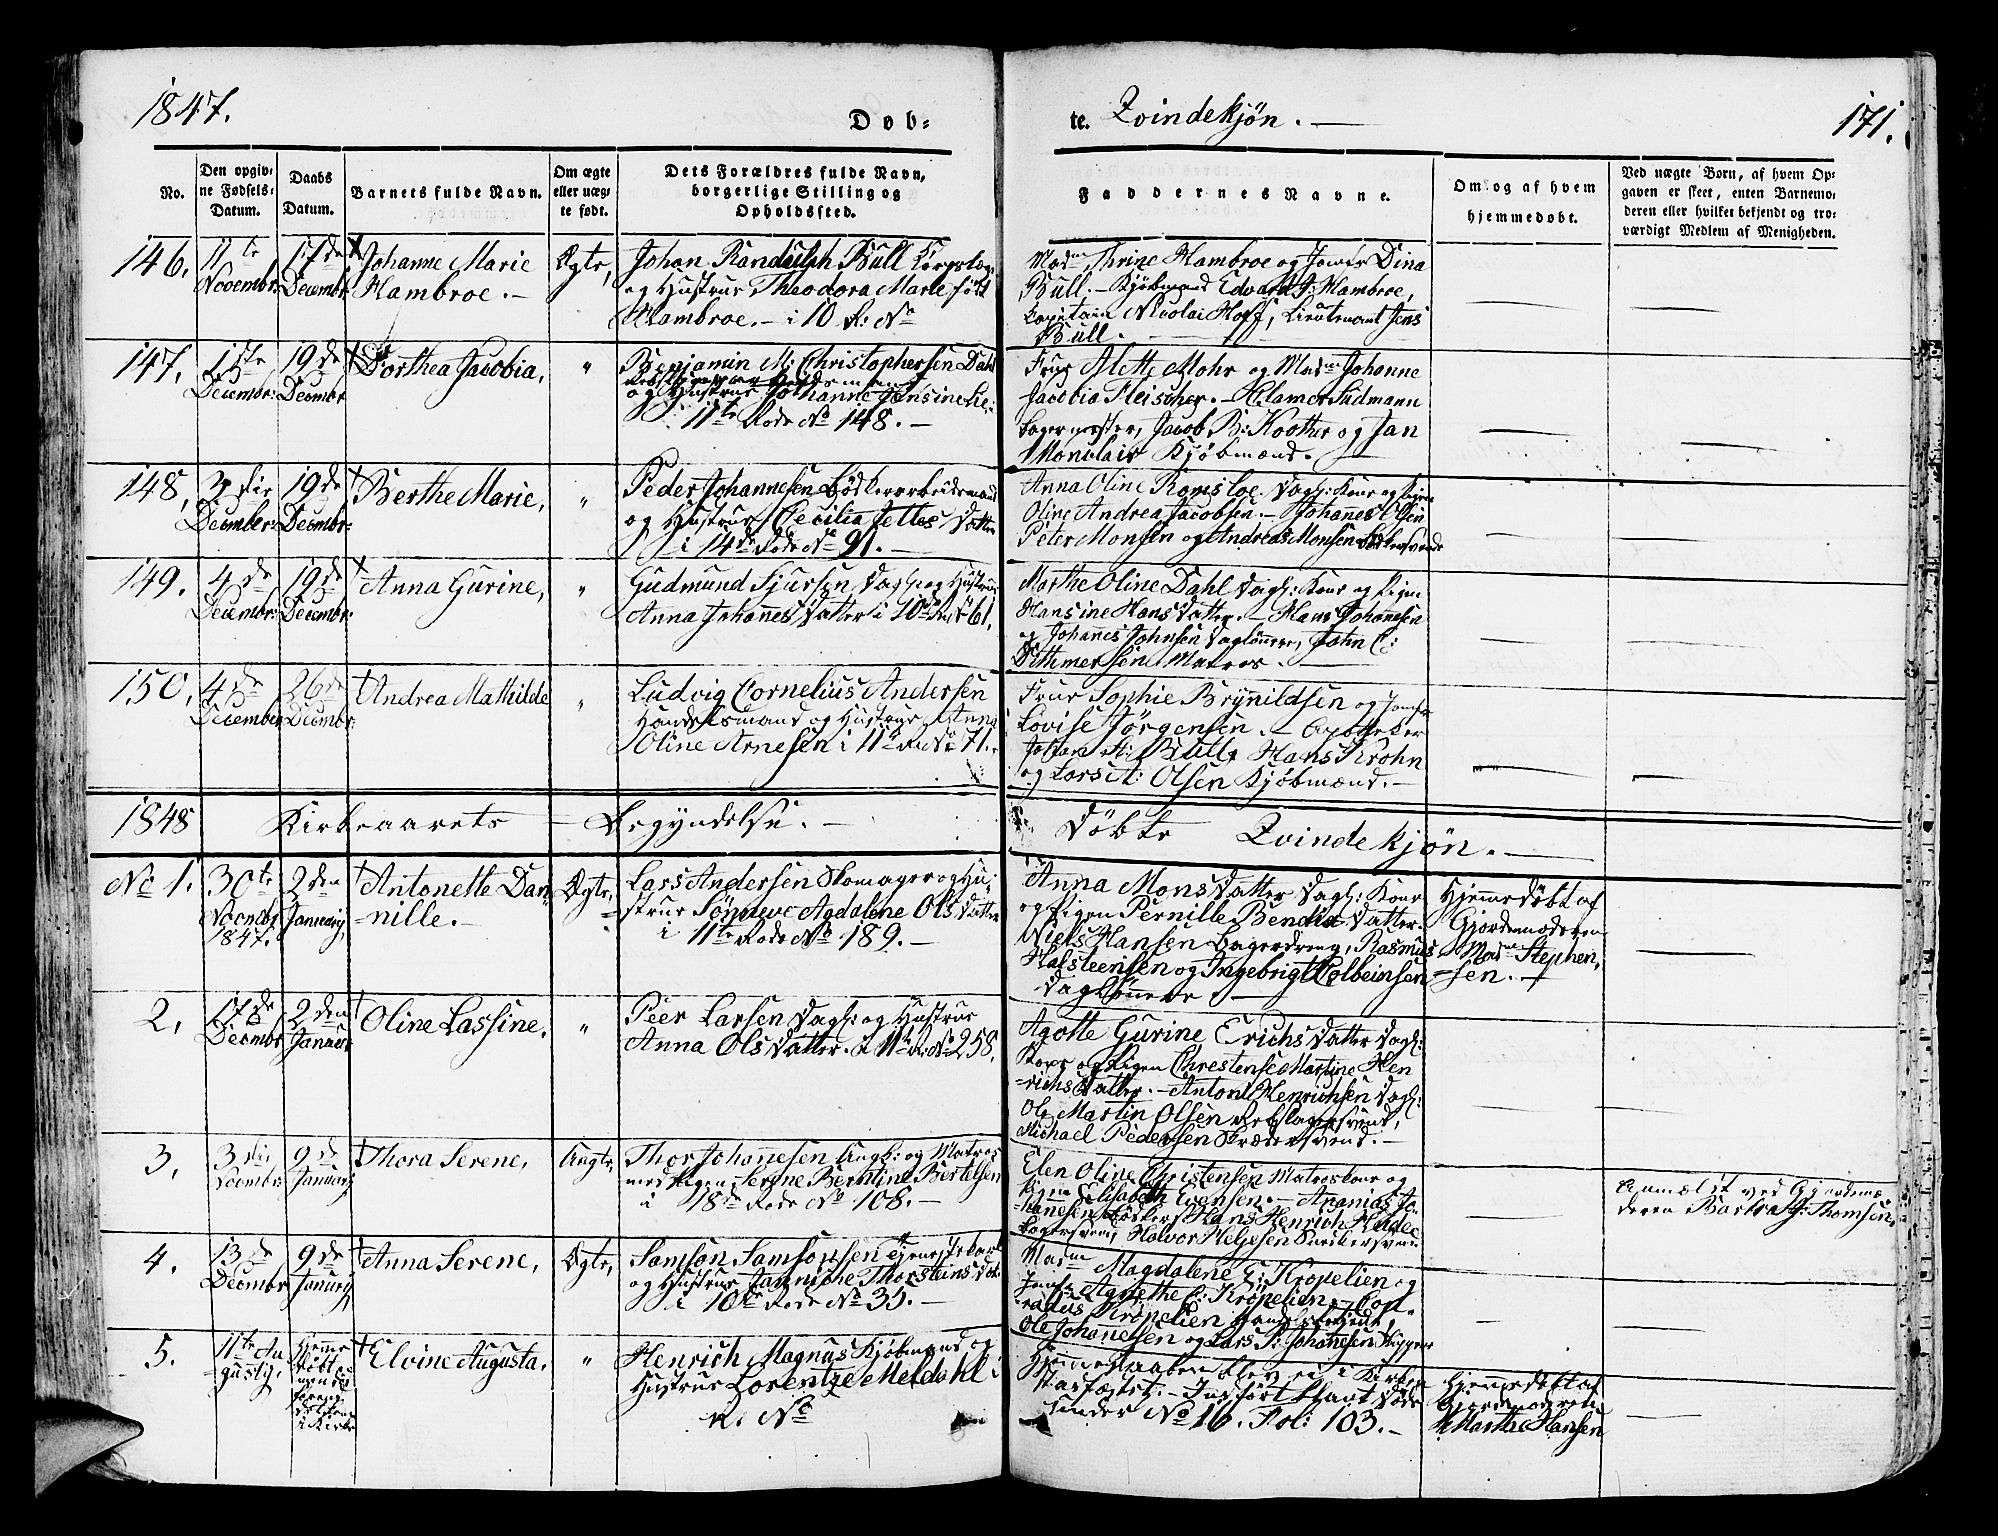 1847.
Døb-
te. Qvindekjøn. —
171.
No.
Den opgiv-
ne Fødsels-
Datum.
Daabs
Datum.
Barnets fulde Navn.
Om ægte
eller uæg-
te født.
Dets Forældres fulde Navn,
borgerlige Stilling og
Opholdssted.
Faddernes Navne.
Om og af hvem
hjemmedøbt.
Ved uægte Børn, af hvem Op-
gaven er skeet, enten Barnemo-
deren eller hvilket bekjendt og tro-
værdigt Medlem af Menigheden.
146. 11te Novembr. 17de Decembr.
Johanne Marie
Hambroe. —
Ægte,
Johan Randulph Bull
og Hustrue Theodora Marie født
Hambroe. — i 10 R: No
Madm Thrine Hambroe og Jomfr Dina
Bull. — Kjøbmand Edvard J: Hambroe,
Capitain Nicolai Hoff, Lieutenant Jens
Bull.
147. 1ste Decembr: 19de Decembr
Dorthea Jacobia,
"
Benjamin M: Christophersen Dahl
og Hustrue Johanne Jensine
i 11te Rode No 148. —
Frue Alette Mohr og Madm Johanne
Jacobia Fleischer. — Clamer Sudmann
Bagermester, Jacob B: Koother og Jan
Monclair Kjøbmænd.
148, 3die Decembr: 19de Decembr:
Berthe Marie,
"
Peder Johannesen Bødkerarbeidsmand
og Hustrue Cecilia Jelles Datter
i 14de Rode No 91. —
Anna Oline Romsloe Dagl: Kone og Pigen
Oline Andrea Jacobsen. — Johannes Olsen
Peter Monsen og Andreas Monsen Bødkersvende
149. 4de Decembr: 19de Decembr:
Anna Gurine,
"
Gudmund Sjursen Dagl: og Hustrue
Anna Johannes Datter i 10de R: No 61.
Marthe Oline Dahl Dagl: Kone og Pigen
Hansine Hans Datter. — Hans Johannesen
og Johannes Johnsen Daglønnere, John C:
Dithmersen Matros. —
150. 4de December 26de Decembr:
Andrea Mathilde
"
Ludvig Cornelius Andersen
Handelsmand og Hustrue Anna
Oline Arnesen i 11te R: No 71. —
Frue Sophie Brynildsen og Jomfr
Lovise Jørgensen. — Apotheker
Johan A: Bull, Hans Krohn
og Lars A: Olsen Kjøbmænd. —
1848 Kirkeaarets Begyndelse. —
Døbte Qvindekjøn. —
No 1. 30te Novembr 1847. 2den January,
Antonette Dan
=nille. —
Ægte,
Lars Andersen Skomager og Hu-
strue Sønneve Magdalene Ols Datter
i 11te Rode No 189. —
Anna Mons Datter Dagl: Kone
og Pigen Pernille Bendix Datter.
Niels Hansen Bagerdreng, Rasmus
Hafsteensen og Ingebrigt Colbeinsen
Daglønnere. —
Hjemmedøbt af
Gjordemoderen
Madm Stephen,
=sen. —
2. 17de Decembr 2den Januar
Oline Lassine,
"
Peer Larsen Dagl: og Hustrue
Anna Ols Datter. i 11te R: No 258.
Agotte Gurine Erichs Datter Dagl:
Kone og Pigen Chrestense Martine Hen
=richs Datter. — Anton Henrichsen Dagl:
Ole Martin Olsen Rebslagersvend,
Michael Pedersen Skrædersvend. —
3. 3die Novembr 9de January
Thora Serene,
Uægte,
Thor Johannesen Ungk: og Matros
med Pigen Serene Berntine Bertelsen
i 18de Rode No 108. —
Elen Oline Christensen Matroskone og
Pigen Elisabeth Evensen. — Ananias Jo-
hannesen Bødker, Hans Henrich
Bagersvend, Halvor Helgesen Snedkersvend
Anmældt ved Gjordemo-
deren Barbra Thomsen,
4. 13de Decembr 9de January
Anna Serene,
Ægte,
Samson Samsonsen
og Hustrue Jannicke Thorsteins Dat.
i 10de Rode No 35. —
Madm Magdalene E: Krøpelien og
Jomfr Agnethe C: Krøpelien. — Con-
radus Krøpelien Handelsbetjent,
Ole Johannesen og Lars P: Johannesen Skipper
5. 11te Au
=gusty,
Hjemme
døbt
i Kirke
Elvine Augusta,
"
Henrich Magnus Kjøbmand og
Hustrue Lorentze Meldahl i
R: No
Hjemmedaaben blev ei i Kirken
stadfæstet. — Indført blant Døde
under No 16. Fol: 103. —
Hjemmedøbt af
Gjordemoderen
Marthe Hansen